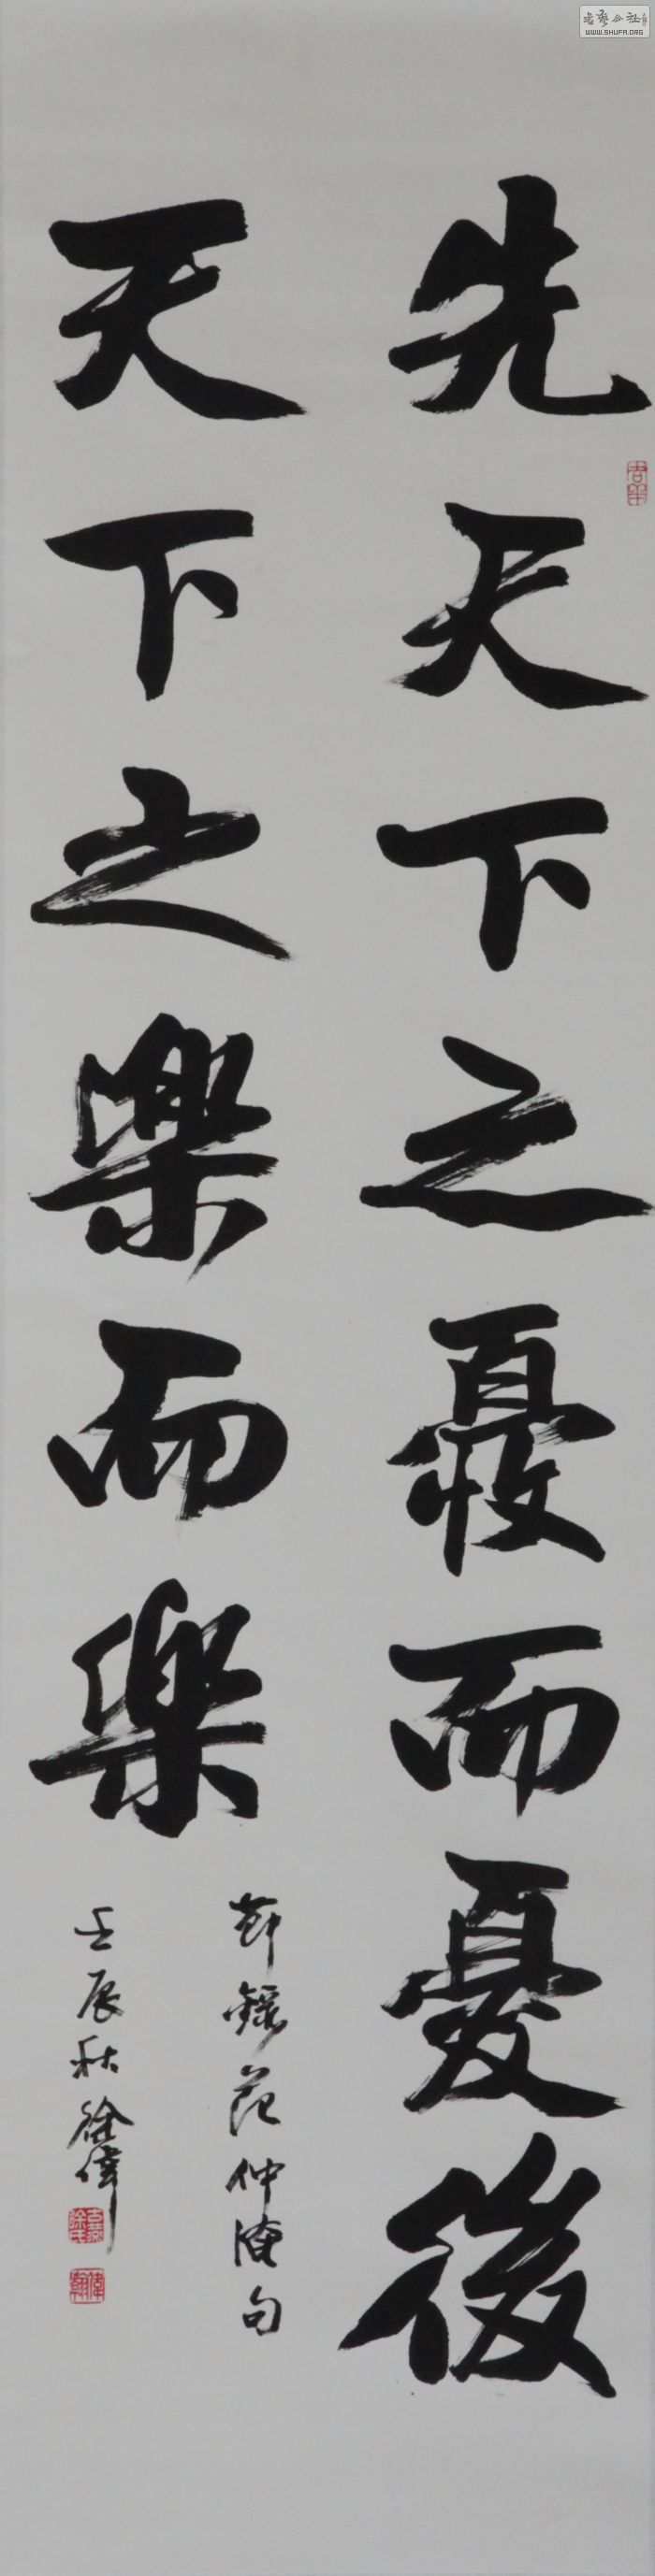 先天下之憂而憂後
天下之樂而樂
節錄范仲淹句
壬辰秋徐偉
WWW.SHUFA.ORG